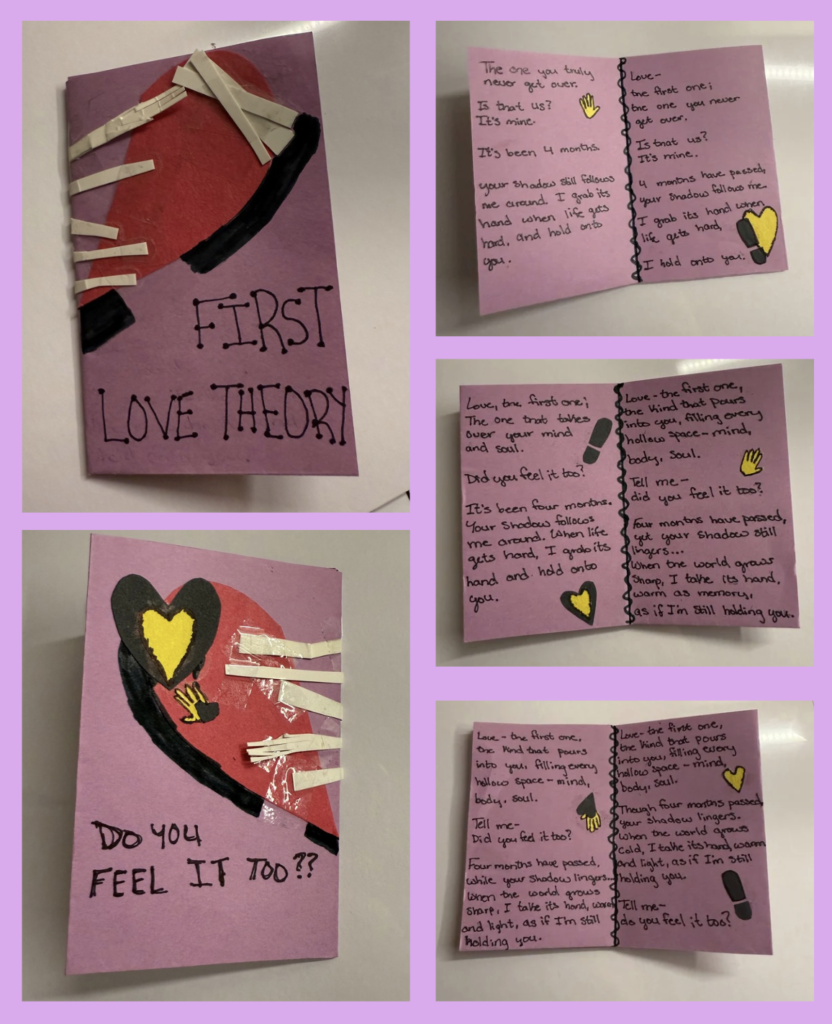 FIRST
LOVE THEORY
DO YOU
FEEL IT TOO??
The one you truly
never get over.
Is that us?
It's mine.
It's been 4 months.
your shadow still follows
me around. I grab its
hand when life gets
hard, and hold onto
you.
Love-
the first one;
the one you never
get over.
Is that us?
It's mine.
4 months have passed,
your shadow follows me.
I grab its hand when
life gets hard,
I hold onto you.
Love, the first one;
The one that takes
over your mind
and soul.
Did you feel it too?
It's been four months.
Your shadow follows
me around. When life
gets hard, I grab its
hand and hold onto
you.
Love-the first one,
the kind that pours
into you, filling every
hollow space-mind,
body, soul.
Tell me-
did you feel it too?
Four months have passed,
yet your shadow still
lingers...
When the world grows
sharp, I take its hand,
warm as memory,
as if I'm still holding you.
Love-the first one,
the kind that pours
into you, filling every
hollow space-mind,
body, soul.
Tell me-
Did you feel it too?
Four months have passed,
while your shadow lingers...
When the world grows
sharp, I take its hand, warm
and light, as if I'm still
holding you.
Love-the first one,
the kind that pours
into you, filling every
hollow space-mind,
body, soul.
Though four months passed,
your shadow lingers.
When the world grows
cold, I take its hand, warm
and light, as if I'm still
holding you.
Tell me-
do you feel it too?